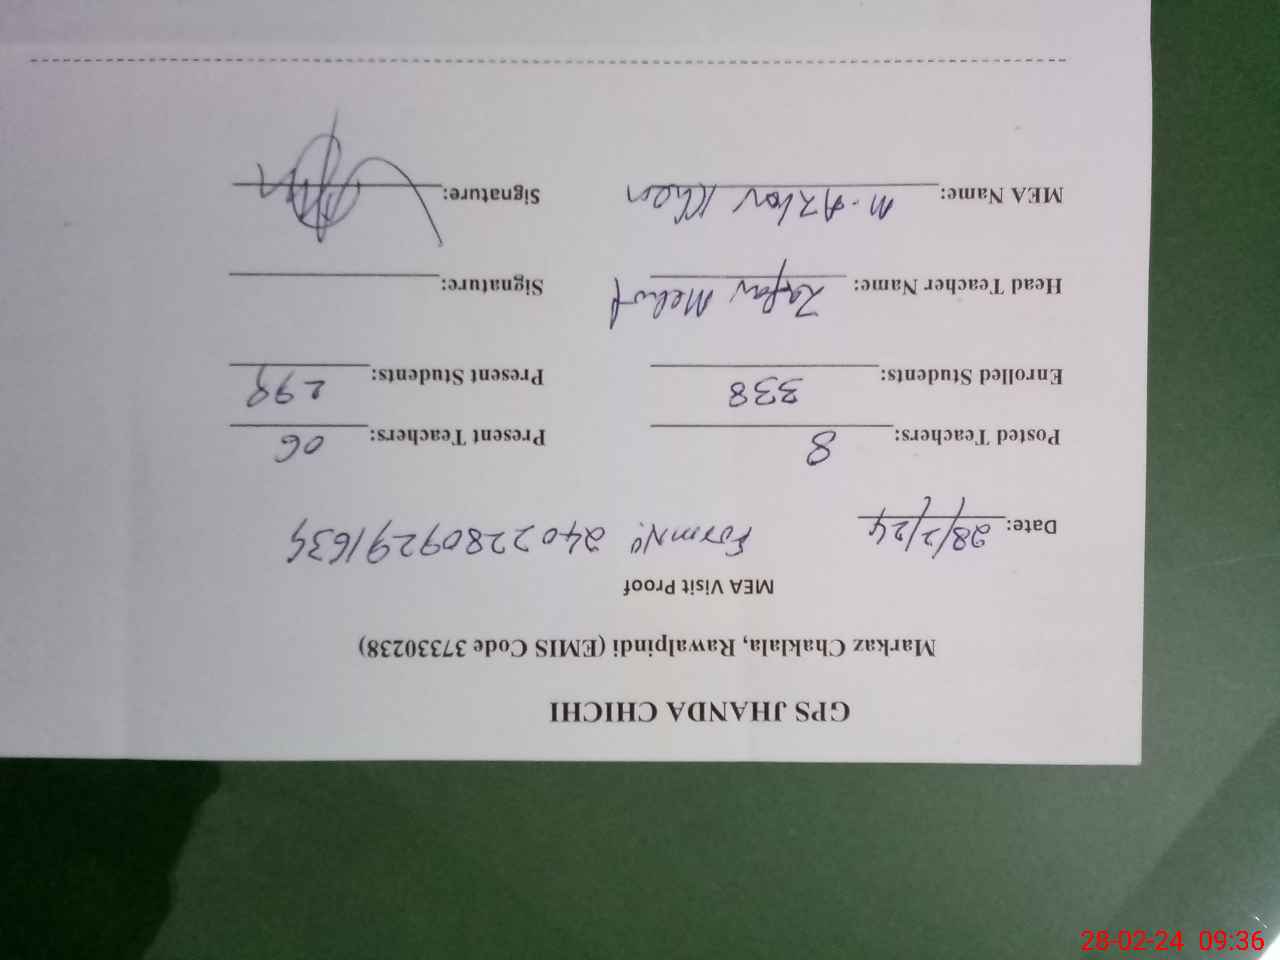 GPS JHANDA CHICHI
Markaz Chaklala, Rawalpindi (EMIS Code 37330238)
MEA Visit Proof
Date: 28/2/24 Form No. 2402280929 1634
Posted Teachers: 8 Present Teachers: 06
Enrolled Students: 338 Present Students: 298
Head Teacher Name: Zafar Signature:
MEA Name: M. Azhar Khan Signature:
28-02-24 09:36